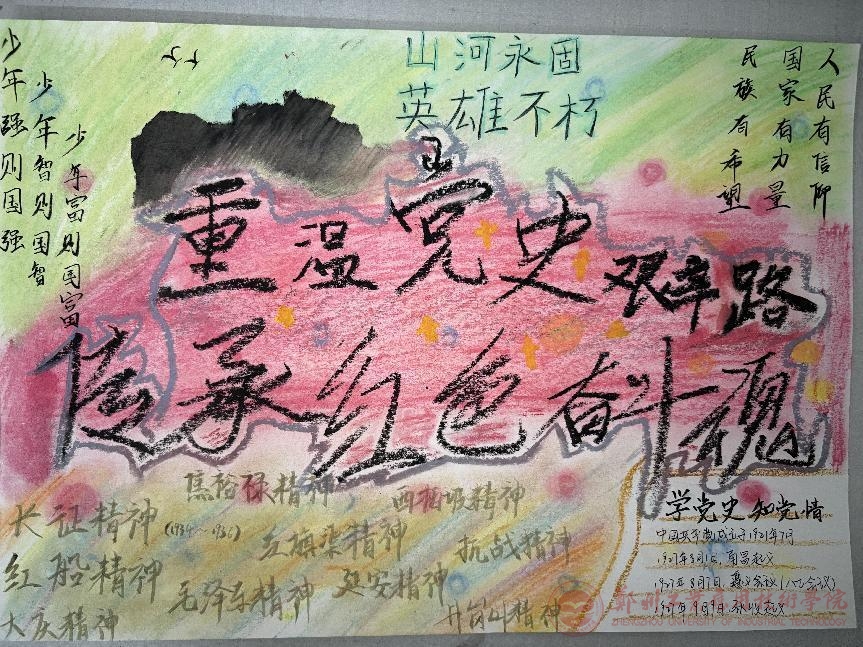 少年强则国强
少年智则国智
少年富则国富
山河永固
英雄不朽
人民有信仰
国家有力量
民族有希望
重温党史艰辛路
传承红色奋斗魂
长征精神
(1934～1936)
红船精神
大庆精神
焦裕禄精神
红旗渠精神
毛泽东精神
西柏坡精神
抗战精神
延安精神
井冈山精神
学党史 知党情
中国共产党成立于1921年7月
1927年8月1日,南昌起义
1927年8月7日,
(八七会议)
1927年9月9日,秋收起义
郑州工业应用技术学院
ZHENGZHOU UNIVERSITY OF INDUSTRIAL TECHNOLOGY